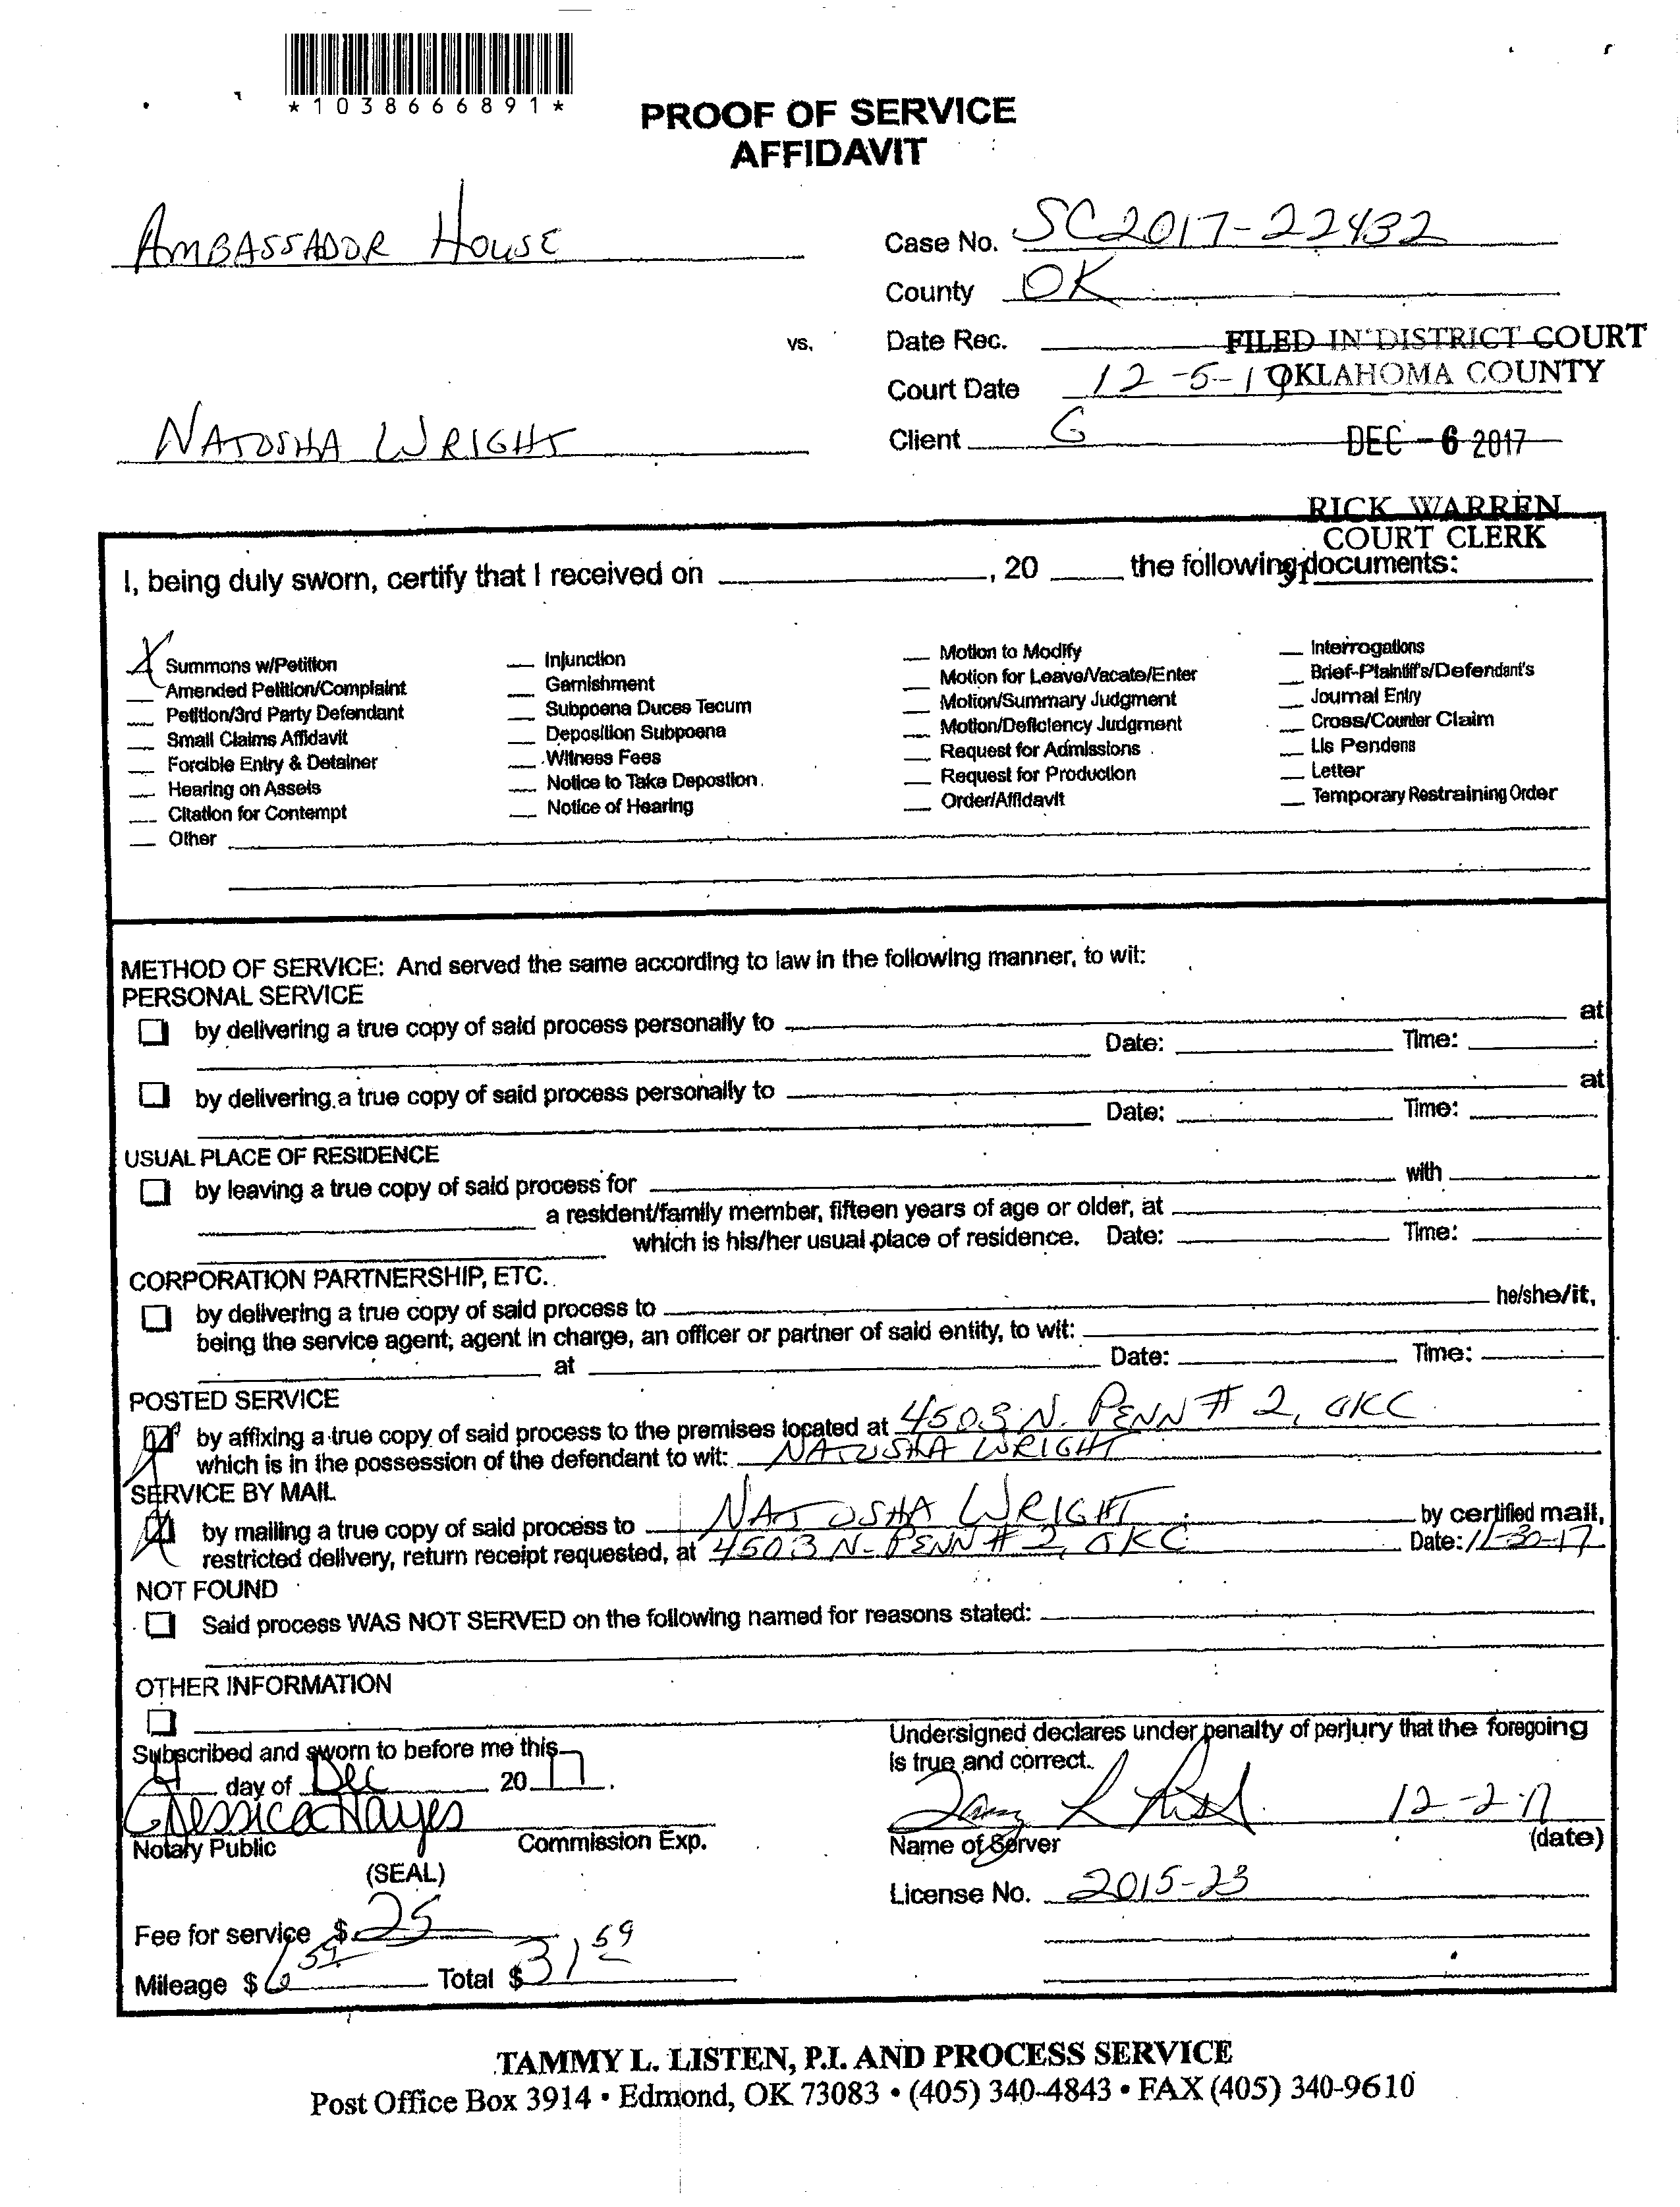 *1038666891*
PROOF OF SERVICE
AFFIDAVIT
AMBASSADOR HOUSE
Case No. SC2017-22432
County OK
vs.
Date Rec.
FILED IN DISTRICT COURT
OKLAHOMA COUNTY
Court Date 12-5-17
NATOSHA WRIGHT
Client G
DEC - 6 2017
RICK WARREN
COURT CLERK
I, being duly sworn, certify that I received on ____, 20 ____ the following documents:
X Summons w/Petition
Amended Petition/Complaint
Petition/3rd Party Defendant
Small Claims Affidavit
Forcible Entry & Detainer
Hearing on Assets
Citation for Contempt
Other
Injunction
Garnishment
Subpoena Duces Tecum
Deposition Subpoena
Witness Fees
Notice to Take Depostion
Notice of Hearing
Motion to Modify
Motion for Leave/Vacate/Enter
Motion/Summary Judgment
Motion/Deficiency Judgment
Request for Admissions
Request for Production
Order/Affidavit
Interrogations
Brief-Plaintiff's/Defendant's
Journal Entry
Cross/Counter Claim
Lis Pendens
Letter
Temporary Restraining Order
METHOD OF SERVICE: And served the same according to law in the following manner, to wit:
PERSONAL SERVICE
by delivering a true copy of said process personally to ____ at
Date: ____ Time: ____
by delivering a true copy of said process personally to ____ at
Date: ____ Time: ____
USUAL PLACE OF RESIDENCE
by leaving a true copy of said process for ____ with ____
a resident/family member, fifteen years of age or older, at ____
which is his/her usual place of residence. Date: ____ Time: ____
CORPORATION PARTNERSHIP, ETC.
by delivering a true copy of said process to ____ he/she/it,
being the service agent, agent in charge, an officer or partner of said entity, to wit: ____
at ____ Date: ____ Time: ____
POSTED SERVICE
by affixing a true copy of said process to the premises located at 4503 N. PENN # 2, OKC
which is in the possession of the defendant to wit: NATOSHA WRIGHT
SERVICE BY MAIL
by mailing a true copy of said process to NATOSHA WRIGHT by certified mail,
restricted delivery, return receipt requested, at 4503 N. PENN # 2, OKC Date: 11-30-17
NOT FOUND
Said process WAS NOT SERVED on the following named for reasons stated:
OTHER INFORMATION
Subscribed and sworn to before me this
4 day of Dec 2017.
Jessica Hayes
Notary Public Commission Exp.
(SEAL)
Fee for service $ 25
Mileage $ 6 59 Total $ 31 59
Undersigned declares under penalty of perjury that the foregoing
is true and correct.
12-2-17
Name of Server (date)
License No. 2015-23
TAMMY L. LISTEN, P.I. AND PROCESS SERVICE
Post Office Box 3914 • Edmond, OK 73083 • (405) 340-4843 • FAX (405) 340-9610